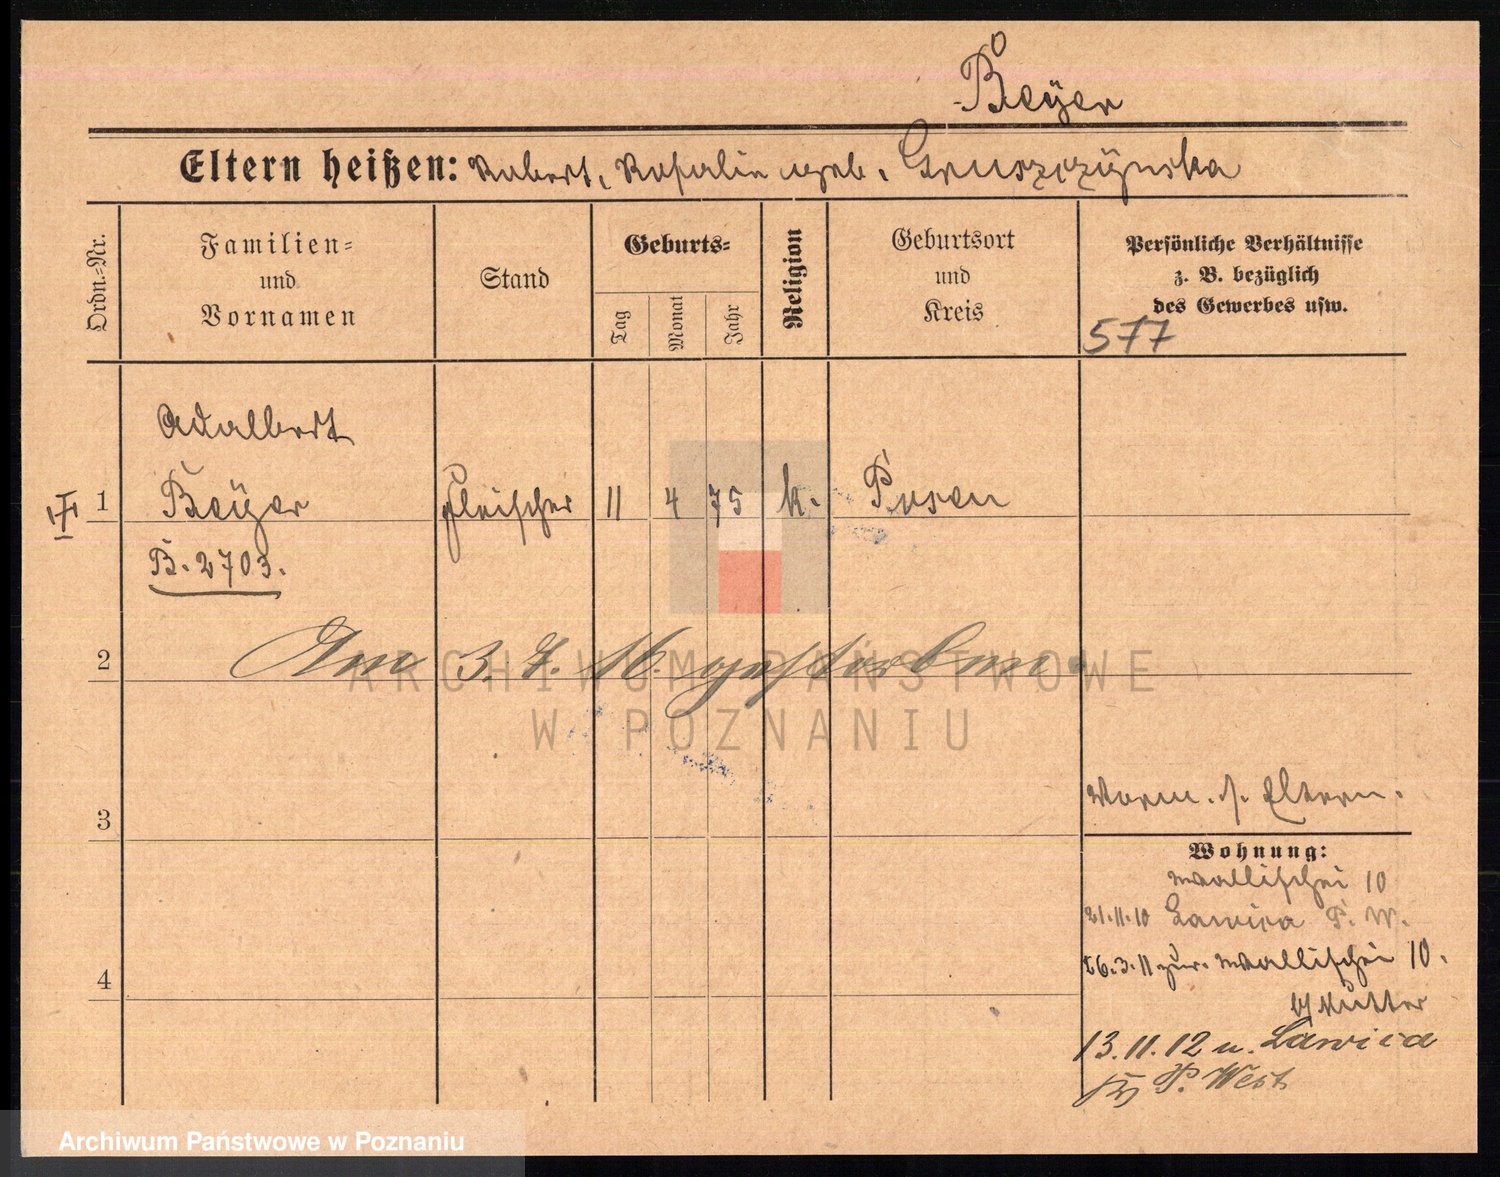 Beÿer
Eltern heißen: Robert, Rosalie geb. Gruszczÿnska
Ordn.=Nr.
Familien=
und
Vornamen
Stand
Geburts=
Tag
Monat
Jahr
Religion
Geburtsort
und
Kreis
Persönliche Verhältnisse
z. B. bezüglich
des Gewerbes usw.
577
Adalbert
1 Beÿer Fleischer 11 4 75 k. Posen
B. 2703.
2 Am 3. 7. 16. gestorben.
3
Vorm. s. Eltern.
Wohnung:
Wallischei 10
21.11.10 Lawica P. W.
26.3.11 zur. Wallischei 10.
b/ Mutter
4
13.11.12 n. Lawica
Kr. P. West
ARCHIWUM PAŃSTWOWE
W POZNANIU
Archiwum Państwowe w Poznaniu